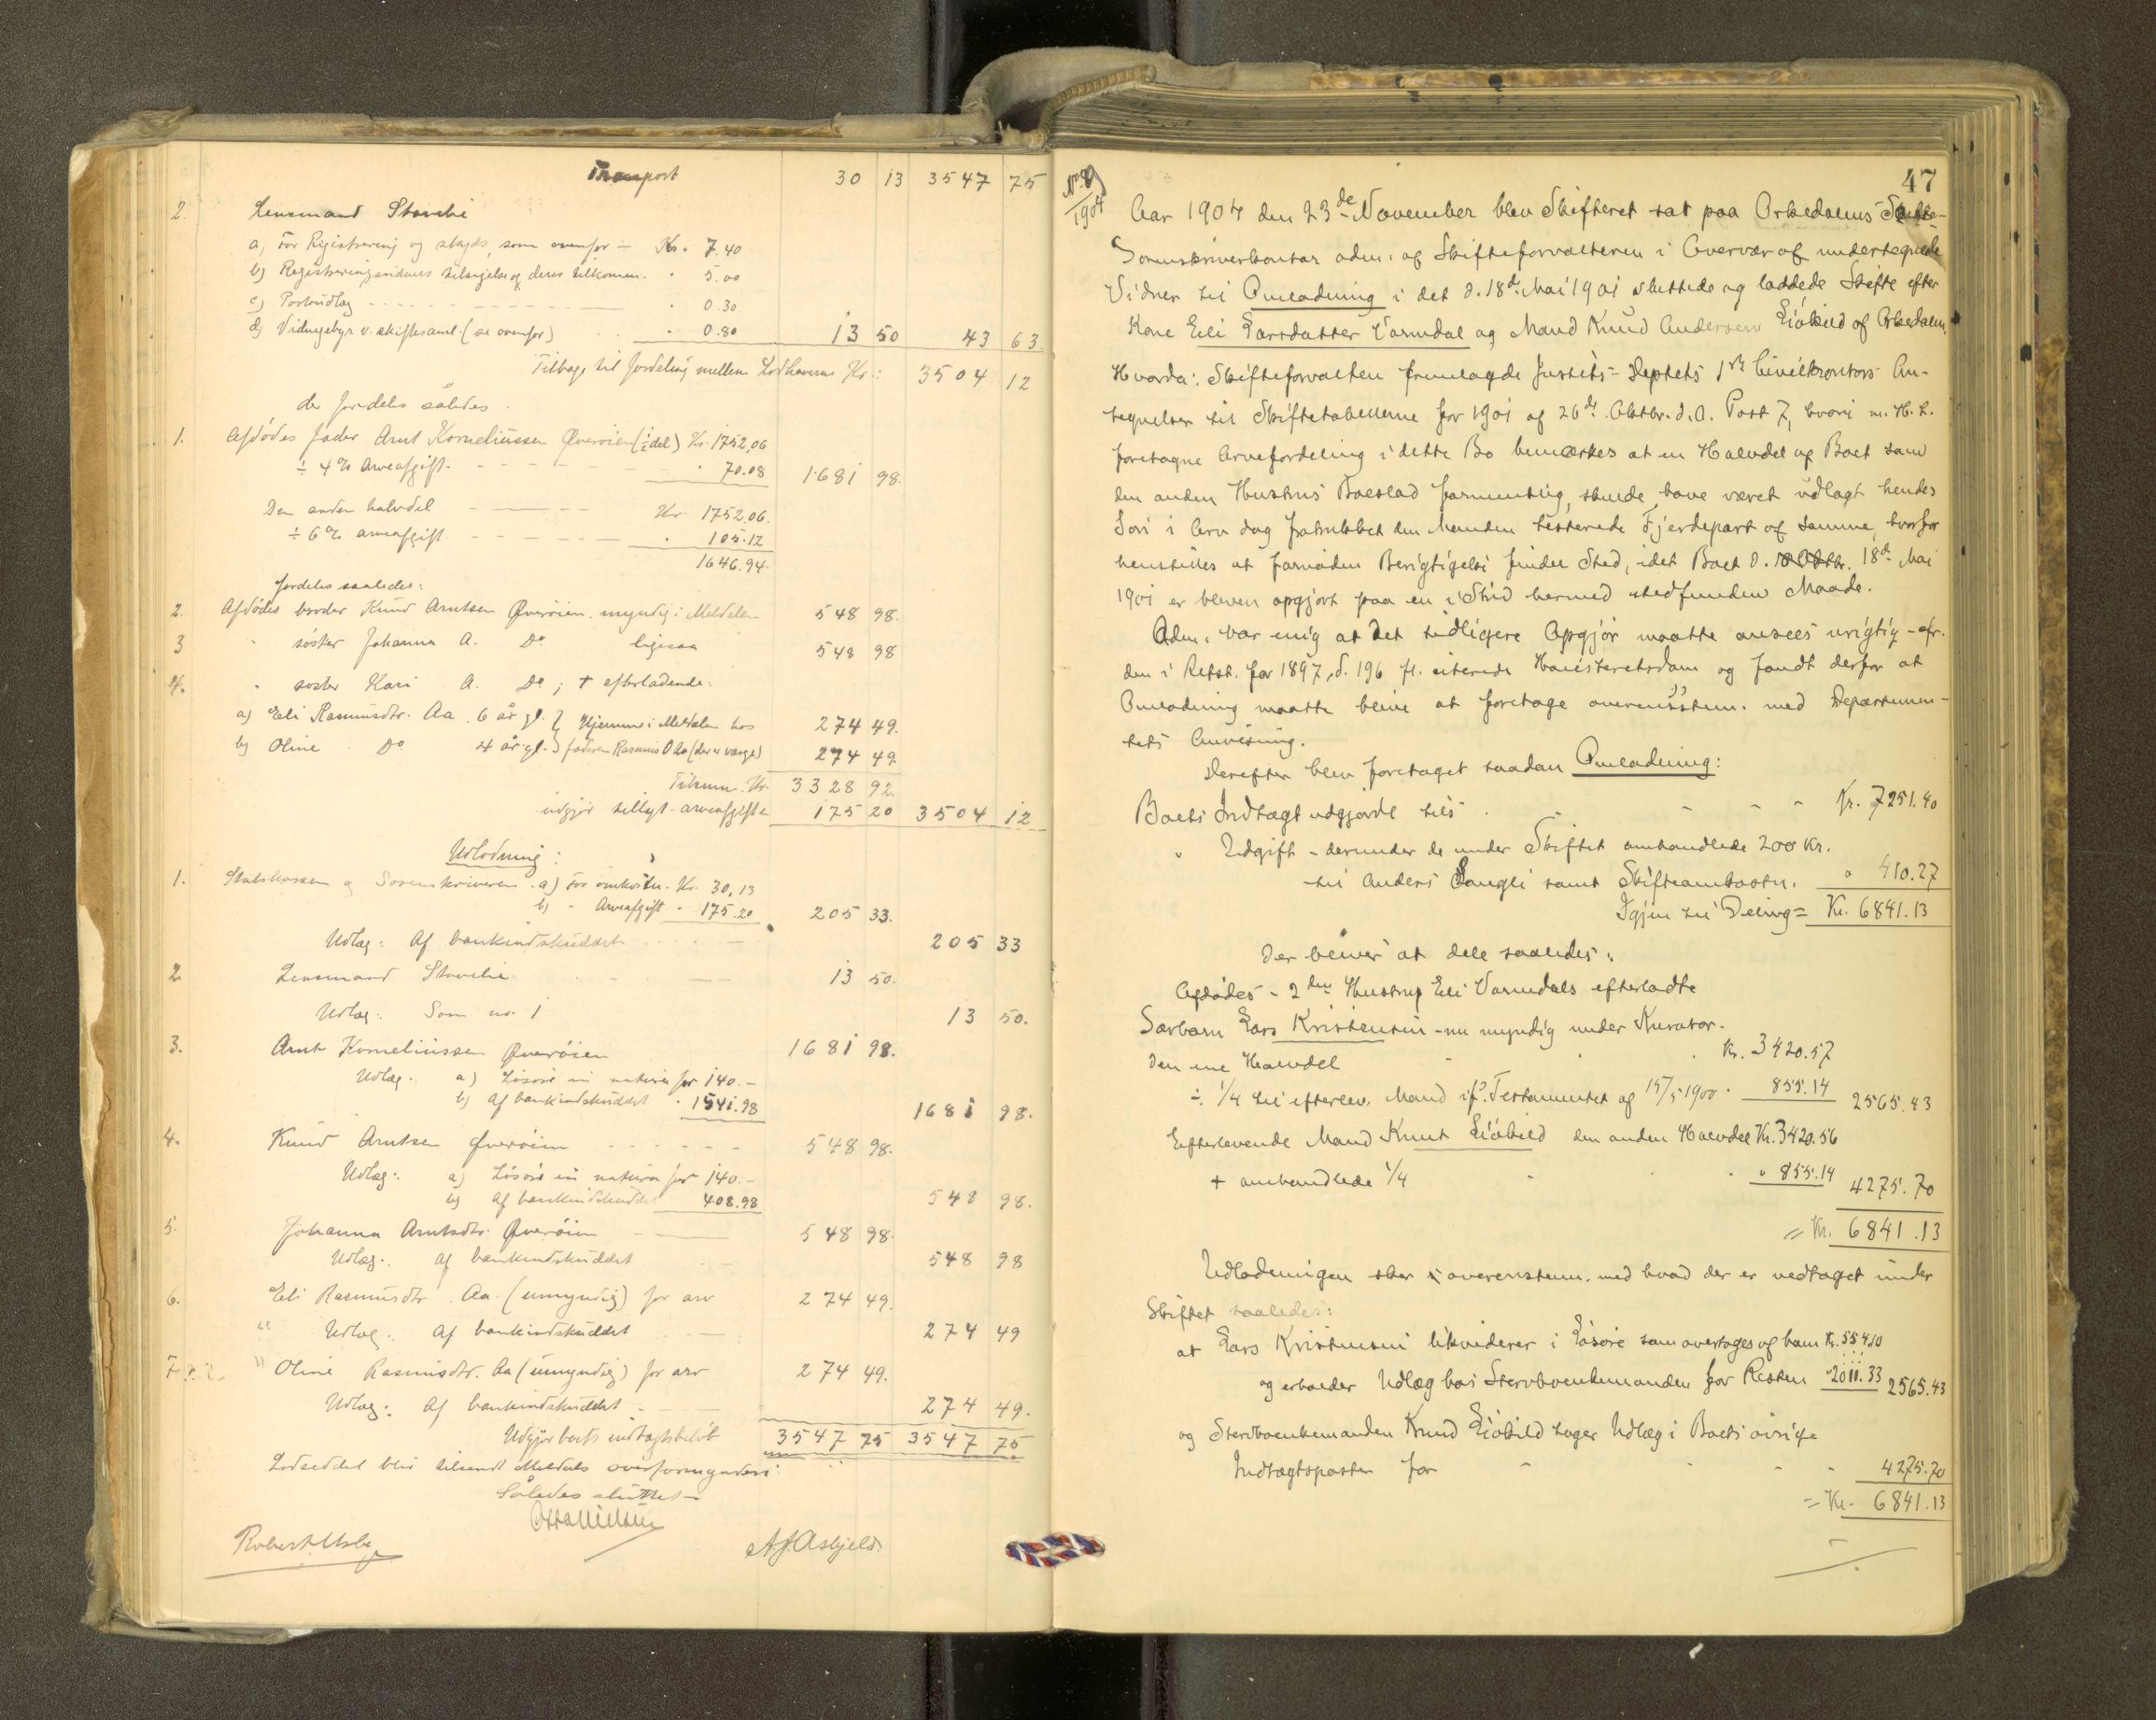 Transport 30 13 3547 75
2. Lensmand Stavlie
a) For Registrering og skyds, som ovenfor — Kr. 7.40
b) Registreringsvidners tilsigelse og deres tilkomm. " 5.00
c) Portoudlæg " 0.30
d) Vidnegebyr v. skiftesaml. (se ovenfor) " 0.80 13 50 43 63
Tilbage til fordeling mellem Lodhaverne Kr.: 3504 12
der fordeles således.
1. Afdødes fader Arnt Korneliussen Øverøien (½ del) Kr. 1752,06
÷ 4 % Arveafgift " 70.08 1681 98.
Den anden halvdel Kr. 1752.06.
÷ 6 % arveafgift " 105.12
1646.94.
fordeles saaledes:
2. Afdødes broder Knud Arntsen Øverøien, myndig i Meldalen 548 98.
3 " søster Johanna A. Do ligesaa 548 98
4. " søster Kari A. Do; † efterladende:
a) Eli Rasmusdtr. Aa 6 år gl. } Hjemme i Meldalen hos 274 49.
b) Oline Do 4 år gl. } faderen Rasmus O Aa (der er værge) 274 49.
Tilsamm. Kr. 3328 92.
udgjør tillagt arveafgiften 175 20 3504 12
Udlodning:
1. Statskassen og Sorenskriveren. a) For omkostn. Kr. 30,13
b) " Arveafgift " 175.20 205 33.
Udlæg: Af bankindskuddet 205 33
2 Lensmand Stavlie 13 50.
Udlæg: Som no. 1 13 50.
3. Arnt Korneliussen Øverøien 1681 98.
Udlæg: a) Løsøre in natura for 140.—
b) Af bankindskuddet " 1541.98 1681 98.
4. Knud Arntsen Øverøien 548 98.
Udlæg: a) Løsøre in natura for 140.—
b) Af bankindskuddet 408.98 548 98.
5. Johanna Arntsdtr. Øverøien 548 98.
Udlæg: af bankindskuddet 548 98
6. Eli Rasmusdtr Aa (umyndig) for arv 274 49.
" Udlæg: Af bankindskuddet 274 49
7 " Oline Rasmusdtr. Aa (umyndig) for arv 274 49.
Udlæg: Af bankindskuddet 274 49.
Udgjør boets indtagtsbeløb 3547 75 3547 75
Lodseddel blir tilsendt Meldals overformynderi
Således sluttet —
Robert Usby
A J Asbjeld.
47
No 9/1904
Aar 1904 den 23de November blev Skifteret sat paa Orkedalens
Sorenskriverkontor adm. af Skifteforvalteren i Overvær af undertegnede
Vidner til Omlodning i det d. 18de Mai 1901 sluttede og loddede Skifte efter
Kone Eli Larsdatter Varmdal og Mand Knud Andersen Liøkild af Orkedalen.
Hvorda: Skifteforvalteren fremlagde Justits-Deptets 1ste Civilkontors An-
tegnelser til Skiftetabellerne for 1901 af 26de Oktbr. d. A. Post 7, hvori m. H. t.
foretagne Arvefordeling i dette Bo bemærkes at en Halvdel af Boet som
den anden Hustrus Boeslod formentlig skulde have været udlagt hendes
Søn i Arv dog fratrukket den Manden testerede Fjerdepart af samme, hvorfor
henstilles at fornøden Berigtigelse finder Sted, idet Boet d. 18de Mai
1901 er bleven opgjort paa en i Strid hermed stedfunden Maade.
Adm. var enig at det tidligere Opgjør maatte ansees urigtig - cfr.
den i Retst. for 1897, S. 196 fl. citerede Høiesteretsdom og fandt derfor at
Omlodning maatte blive at foretage overensstem. med Departemen-
tets Anvisning.
Derefter blev foretaget saadan Omlodning:
Boets Indtægt udgjorde til Kr. 7251.40
" Udgift - derunder de under Skiftet omhandlede 200 Kr.
til Anders Sougli samt Skifteomkostn. " 410.27
Igjen til Deling = Kr. 6841.13
Der bliver at dele saaledes:
Afdødes - 2den Hustru Eli Varmdals efterladte
Særbarn Lars Kristensen - nu myndig under Kurator.
Den ene Halvdel Kr. 3420.57
÷ 1/4 til efterlev. Mand if. Testamentet af 15/5 1900 " 855.14 2565.43
Efterlevende Mand Knut Liøkild den anden Halvdel Kr. 3420.56
+ omhandlede 1/4 " 855.14 4275.70
= Kr. 6841.13
Udlodningen sker i overensstem. med hvad der er vedtaget under
Skiftet saaledes:
at Lars Kristensen likviderer i Løsøre som overtoges af ham Kr. 554.10
og erholder Udlæg hos Stervboenkemanden for Resten " 2011.33 2565.43
og Stervboenkemanden Knud Liøkild tager Udlæg i Boets øvrige
Indtægtsposter for 4275.70
= Kr. 6841.13